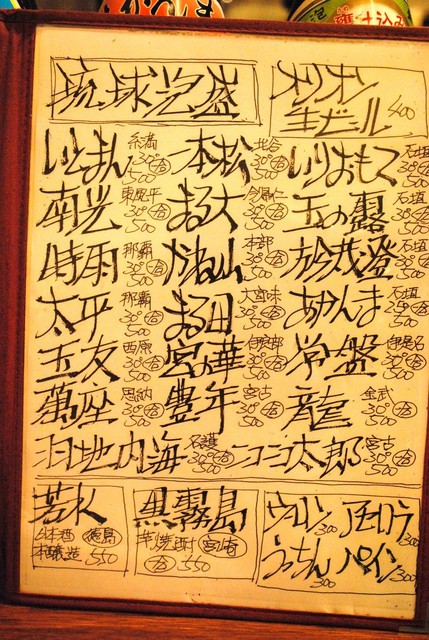 琉球泡盛
オリオン
生ビール 400
いとまん 糸満 30° 500
一本松 北谷 30° 500
いりおもて 石垣 30° 500
南光 東風平 30° 500
まる大 今帰仁 30° 500
玉の露 石垣 30° 500
時雨 那覇 30° 500
がね山 本部 30° 500
於茂登 石垣 30° 500
太平 那覇 30° 500
まる田 大宜味 30° 500
あかんま 石垣 25° 500
玉友 西原 30° 500
宮の華 伊良部 30° 500
常盤 伊是名 30° 500
萬座 恩納 30° 500
豊年 宮古 30° 500
龍 金武 30° 500
羽地内海 名護 30° 500
ニコニコ太郎 宮古 30° 500
若水
日本酒 徳島
本醸造 550
黒霧島
芋焼酎 宮崎
550
ウーロン 300
アセロラ 300
うっちん 300
パイン 300